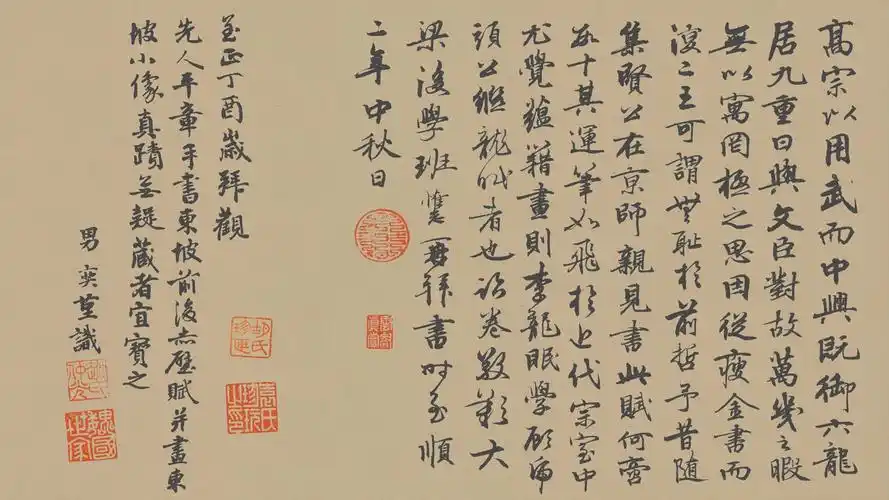 高宗以用武而中興既御六龍
居九重日與文臣對故萬幾之暇
無以寓罔極之思因從瘦金書而
溲二王可謂無恥於前哲予昔隨
集賢公在京師親見書此賦何啻
數十其運筆如飛於近代宗室中
尤覺蘊籍畫則李龍眠學顧虎
頭公繼龍眠者也詒卷敬歎大
梁後學班惟一再拜書時至順
二年中秋日
至正丁酉歲拜觀
先人平章手書東坡前後赤壁賦并畫東
坡小像真蹟無疑藏者宜寶之
男奕堇識
胡氏
珍匣
魏國
世家